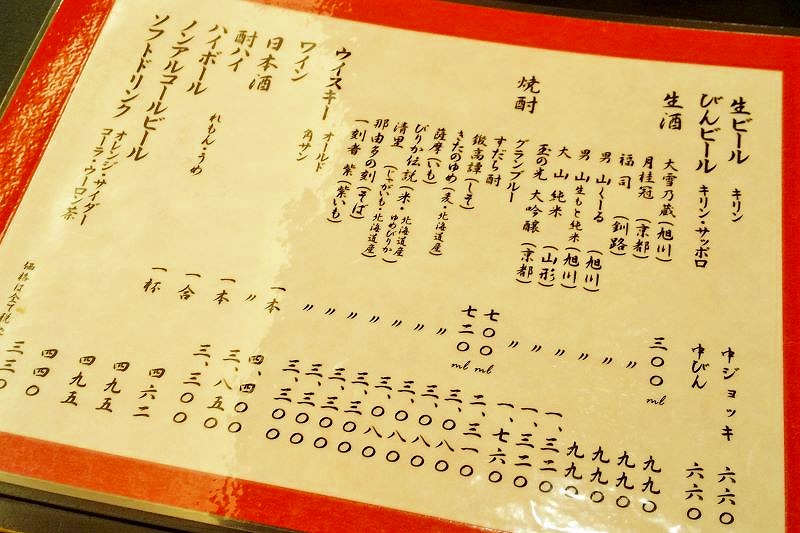 生ビール キリン 中ジョッキ 六六〇
びんビール キリン・サッポロ 中びん 六六〇
生酒
大雪乃蔵(旭川) 三〇〇ml 九九〇
月桂冠(京都) 〃 九九〇
福司(釧路) 〃 九九〇
男山くーる(旭川) 〃 九九〇
男山生もと純米(旭川) 〃 一、三二〇
大山純米(山形) 〃 一、三二〇
玉の光 大吟醸(京都) 〃 一、七六〇
焼酎
グランブルー 七〇〇ml 二、三一〇
すだち酎 七二〇ml 三、〇八〇
鍛高譚(しそ) 〃 三、三〇〇
きたのゆめ(麦・北海道産) 〃 三、〇八〇
薩摩(いも) 〃 三、〇八〇
ぴりか伝説(米・北海道産ゆめぴりか) 〃
清里(じゃがいも・北海道産) 〃
那由多の刻(そば) 〃 三、三〇〇
一刻者 紫(紫いも) 〃 三、三〇〇
ウイスキー オールド 一本 四、四〇〇
角サン 〃 三、八五〇
ワイン 一本 三、三〇〇
日本酒 一合 四六二
酎ハイ 一杯 四九五
ハイボール れもん・うめ 四九五
ノンアルコールビール 四四〇
ソフトドリンク オレンジ・サイダー コーラ・ウーロン茶 三三〇
価格は全て税